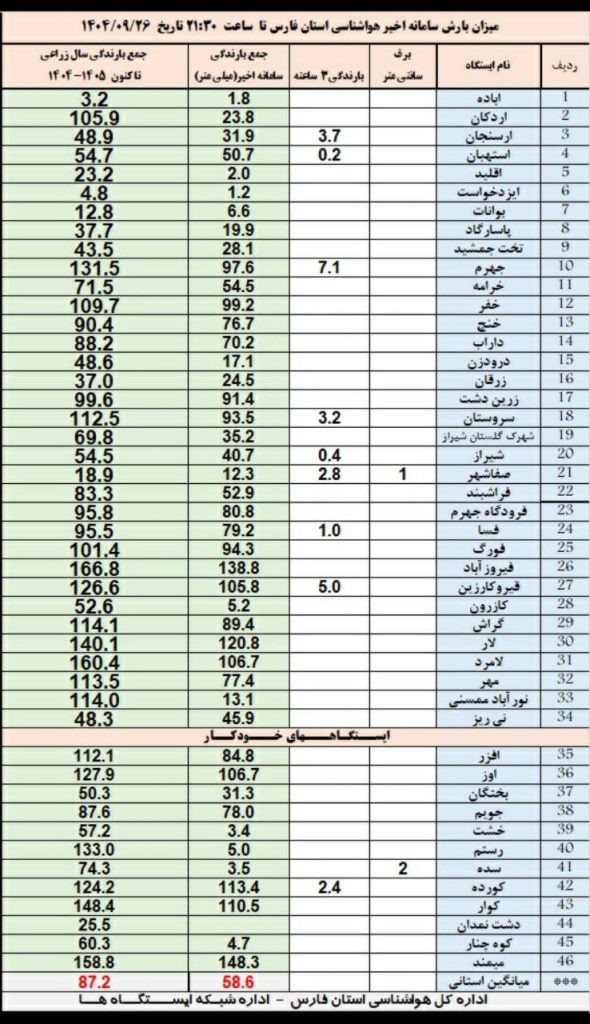 میزان بارش سامانه اخیر هواشناسی استان فارس تا ساعت ۲۱:۳۰ تاریخ ۱۴۰۴/۰۹/۲۶
ردیف نام ایستگاه برف سانتی متر بارندگی ۳ ساعته جمع بارندگی سامانه اخیر(میلی متر) جمع بارندگی سال زراعی تا کنون ۱۴۰۵-۱۴۰۴
1 اباده 1.8 3.2
2 اردکان 23.8 105.9
3 ارسنجان 3.7 31.9 48.9
4 استهبان 0.2 50.7 54.7
5 اقلید 2.0 23.2
6 ایزدخواست 1.2 4.8
7 بوانات 6.6 12.8
8 پاسارگاد 19.9 37.7
9 تخت جمشید 28.1 43.5
10 جهرم 7.1 97.6 131.5
11 خرامه 54.5 71.5
12 خفر 99.2 109.7
13 خنج 76.7 90.4
14 داراب 70.2 88.2
15 درودزن 17.1 48.6
16 زرقان 24.5 37.0
17 زرین دشت 91.4 99.6
18 سروستان 3.2 93.5 112.5
19 شهرک گلستان شیراز 35.2 69.8
20 شیراز 0.4 40.7 54.5
21 صفاشهر 1 2.8 12.3 18.9
22 فراشبند 52.9 83.3
23 فرودگاه جهرم 80.8 95.8
24 فسا 1.0 79.2 95.5
25 فورگ 94.3 101.4
26 فیروز آباد 138.8 166.8
27 قیروکارزین 5.0 105.8 126.6
28 کازرون 5.2 52.6
29 گراش 89.4 114.1
30 لار 120.8 140.1
31 لامرد 106.7 160.4
32 مهر 77.4 113.5
33 نور آباد ممسنی 13.1 114.0
34 نی ریز 45.9 48.3
ایستگاههای خودکار
35 افزر 84.8 112.1
36 اوز 106.7 127.9
37 بختگان 31.3 50.3
38 جویم 78.0 87.6
39 خشت 3.4 57.2
40 رستم 5.0 133.0
41 سده 2 3.5 74.3
42 کورده 2.4 113.4 124.2
43 کوار 110.5 148.4
44 دشت نمدان 25.5
45 کوه چنار 4.7 60.3
46 میمند 148.3 158.8
*** میانگین استانی 58.6 87.2
اداره کل هواشناسی استان فارس - اداره شبکه ایستگاه ها